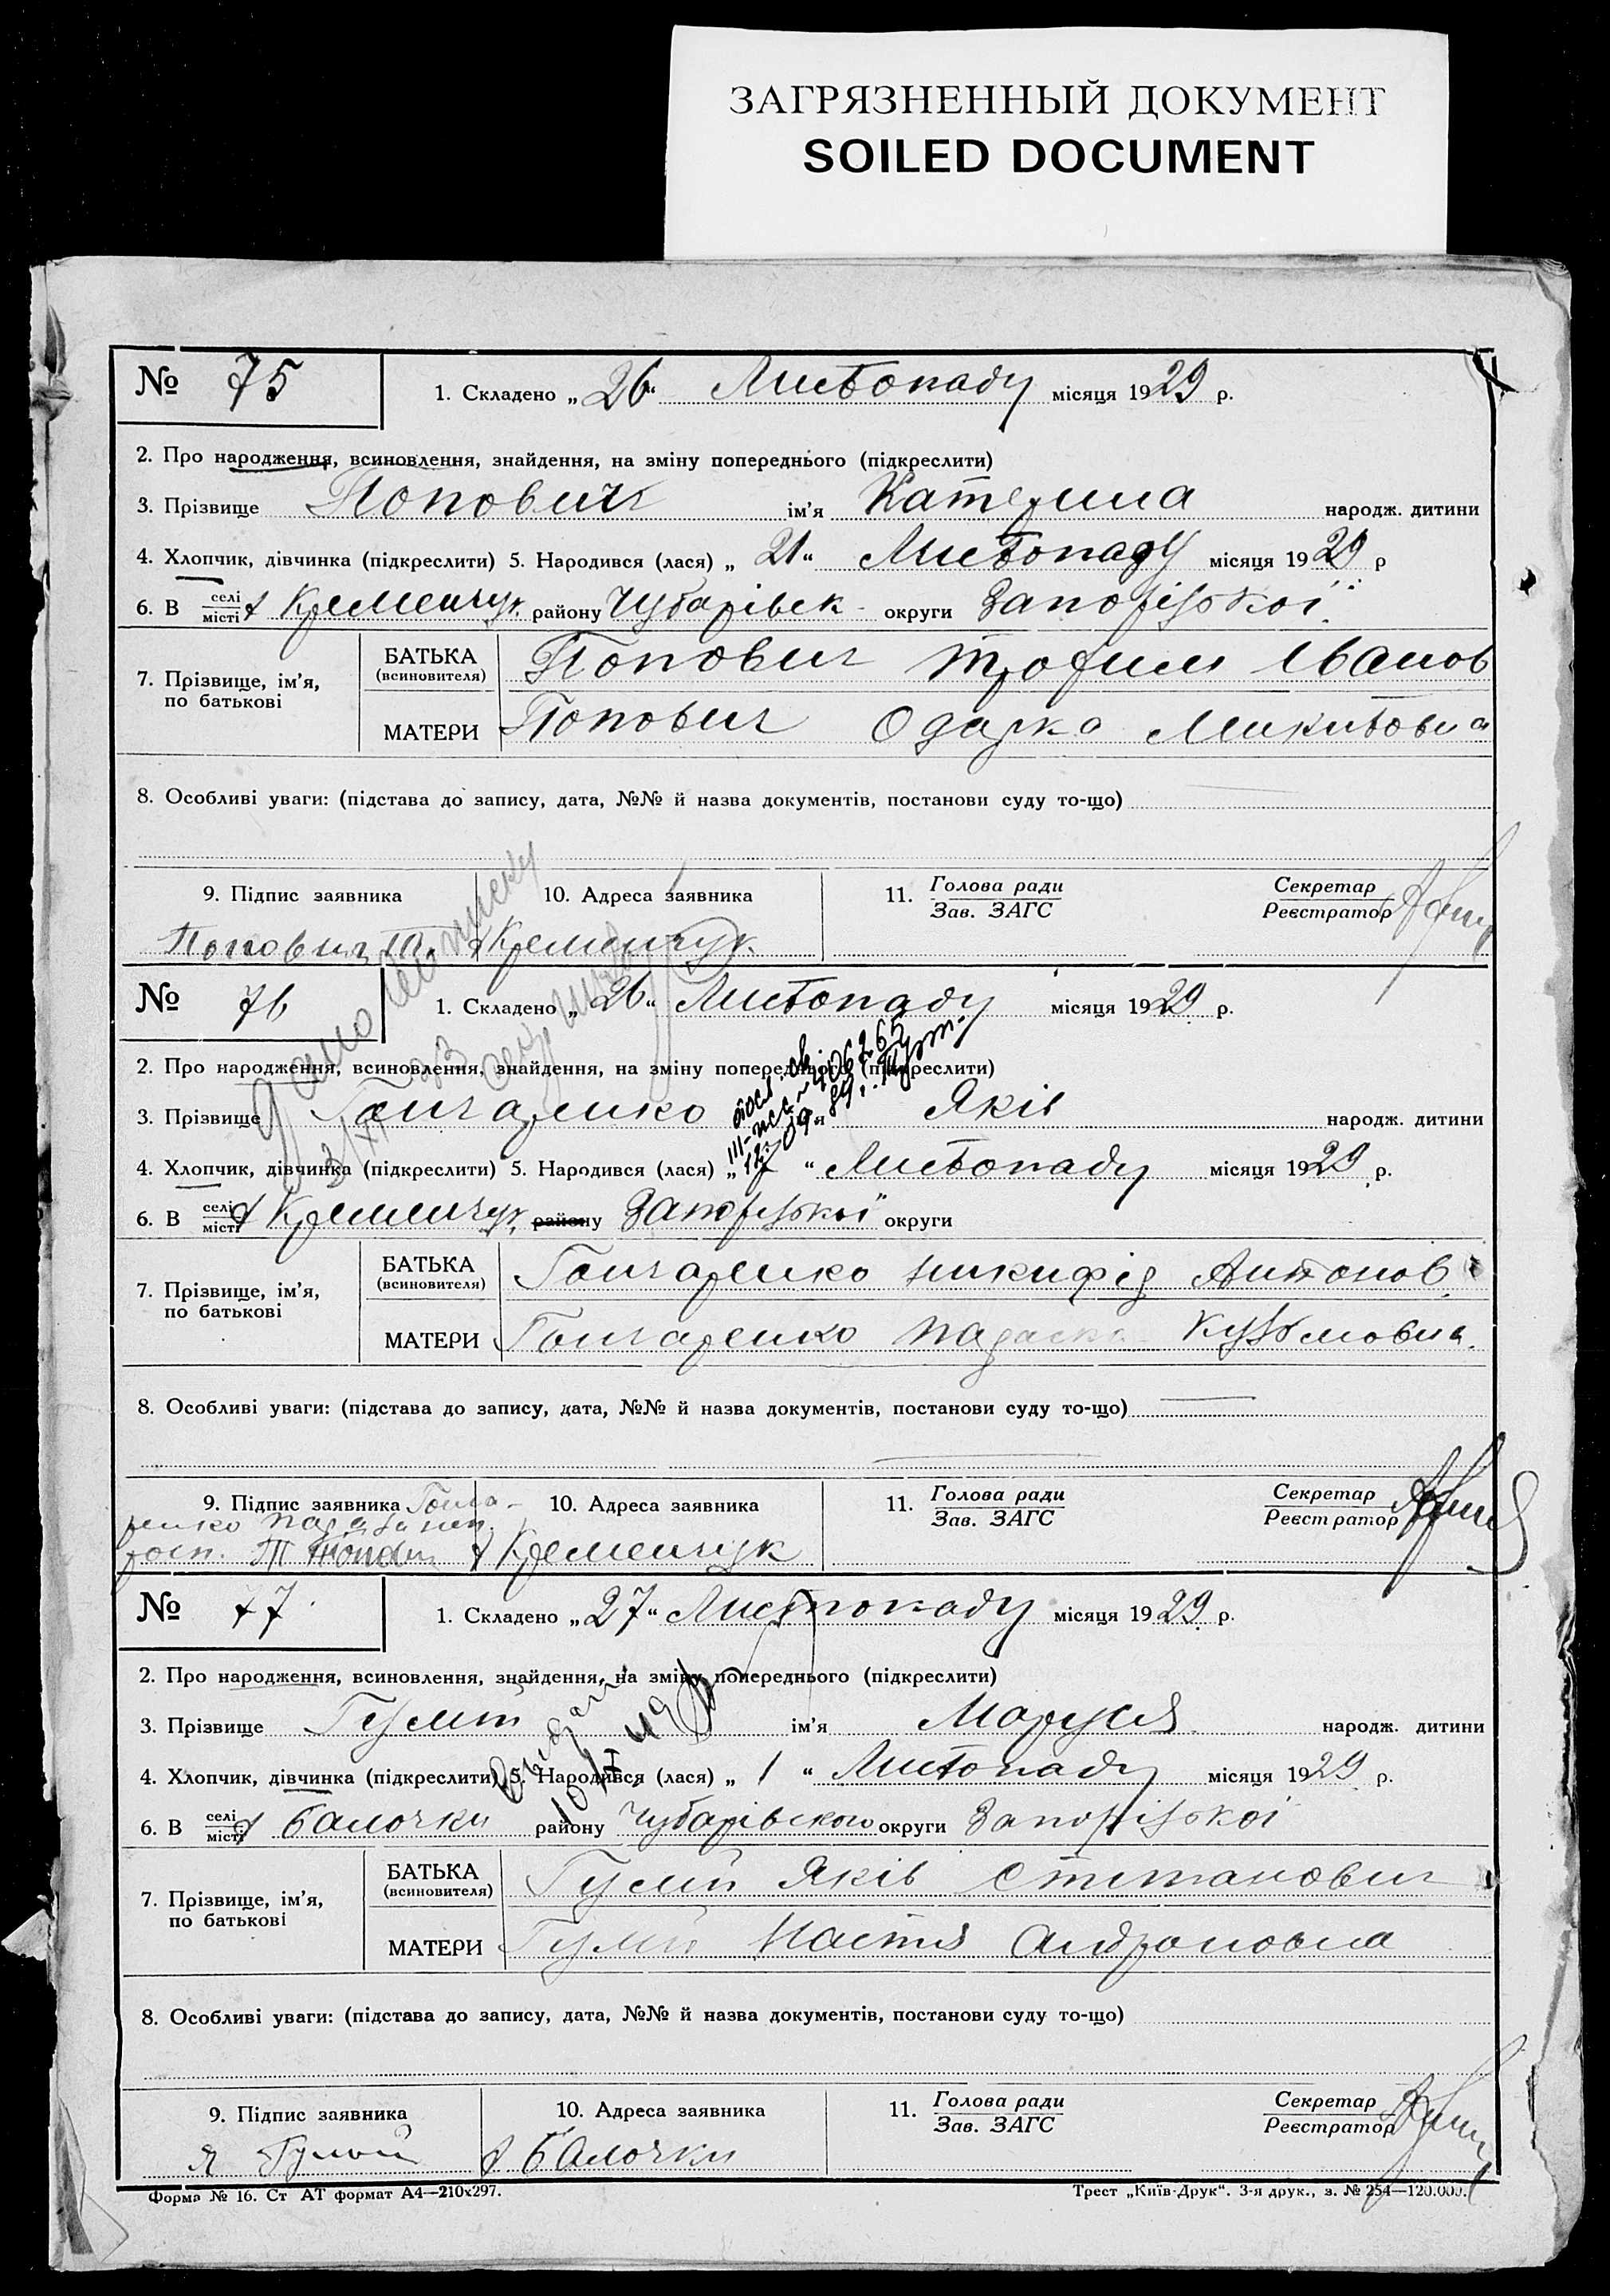 ЗАГРЯЗНЕННЫЙ ДОКУМЕНТ
SOILED DOCUMENT
№ 75
1. Складено „26“ Листопаду місяця 1929 р.
2. Про народження, всиновлення, знайдення, на зміну попереднього (підкреслити)
3. Прізвище Попович ім’я Катерина народж. дитини
4. Хлопчик, дівчинка (підкреслити) 5. Народився (лася) „21“ Листопаду місяця 1929 р
6. В селі місті х Кременчук району Чубарівск округи Запоріzької
7. Прізвище, ім’я, по батькові
БАТЬКА (всиновителя) Попович Трофим Іванов
МАТЕРИ Попович Одарка Микитовна
8. Особливі уваги: (підстава до запису, дата, №№ й назва документів, постанови суду то-що)
9. Підпис заявника 10. Адреса заявника 11. Голова ради Зав. ЗАГС Секретар Реєстратор
Попович Т. х Кременчук
№ 76
1. Складено „26“ Листопаду місяця 1929 р.
2. Про народження, всиновлення, знайдення, на зміну попереднього (підкреслити)
3. Прізвище Гончаренко ім’я Яків народж. дитини
4. Хлопчик, дівчинка (підкреслити) 5. Народився (лася) „7“ Листопаду місяця 1929 р.
6. В селі місті х Кременчук району Запорізької округи
7. Прізвище, ім’я, по батькові
БАТЬКА (всиновителя) Гончаренко Никифід Антонов
МАТЕРИ Гончаренко Кузьмовна
8. Особливі уваги: (підстава до запису, дата, №№ й назва документів, постанови суду то-що)
9. Підпис заявника Гонча- 10. Адреса заявника 11. Голова ради Зав. ЗАГС Секретар Реєстратор
ренко
х Кременчук
№ 77
1. Складено „27“ Листопаду місяця 1929 р.
2. Про народження, всиновлення, знайдення, на зміну попереднього (підкреслити)
3. Прізвище Гулий ім’я Маруся народж. дитини
4. Хлопчик, дівчинка (підкреслити) 5. Народився (лася) „1“ Листопаду місяця 1929 р.
6. В селі місті х Балочки району Чубарівского округи Запорізької
7. Прізвище, ім’я, по батькові
БАТЬКА (всиновителя) Гулий Яків Степанович
МАТЕРИ Гулий Настя Андроновна
8. Особливі уваги: (підстава до запису, дата, №№ й назва документів, постанови суду то-що)
9. Підпис заявника 10. Адреса заявника 11. Голова ради Зав. ЗАГС Секретар Реєстратор
Я Гулий х Балочки
Форма № 16. Ст АТ формат А4—210х297. Трест „Київ-Друк“. 3-я друк., з. № 254—120.000.